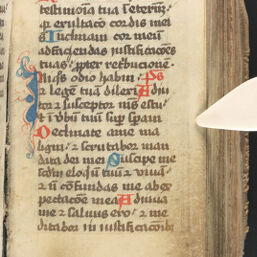 testimonia tua ī eternū.
q̄ exultacō cordis mei
Inclinaui cor meū
ad faciendas iustificacōes
tuas ꝓpter retbucionē.
Iniq̄s odio habui. Ps
⁊ legē tuā dilexi Adiu
tor ⁊ susceptor ms es tu
⁊ ī vbū tuū sup̄ spaui
Declinate a me ma
ligni ⁊ scrutabor man
data dei mei Suscipe me
scdm eloqū tuū ⁊ viuā
⁊ ñ cōfundas me ab ex
pectacōe mea Adiuua
me ⁊ saluus ero ⁊ me
ditabor in iustificacōib